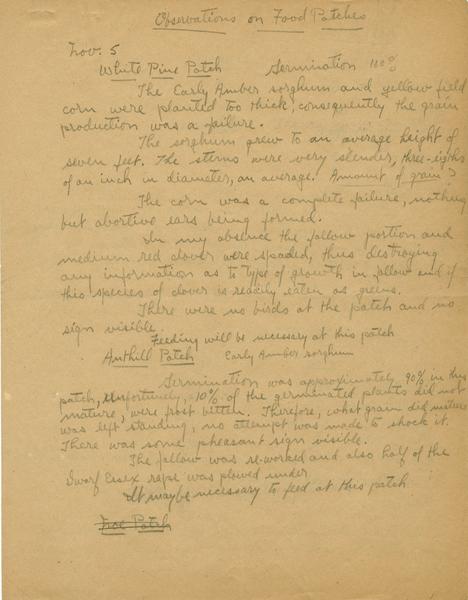 Observations on Food Patches
Nov. 5
White Pine Patch Germination 110%
The Early Amber sorghum and yellow field
corn were planted too thick; consequently the grain
production was a failure.
The sorghum grew to an average height of
seven feet. The stems were very slender, three-eigths
of an inch in diameter, an average. Amount of grain?
The corn was a complete failure, nothing
but abortive ears being formed.
In my absence the fallow portion and
medium red clover were spaded, thus destroying
any information as to type of growth in fallow and if
this species of clover is readily eaten as greens.
There were no birds at the patch and no
sign visible.
Feeding will be necessary at this patch
Anthill Patch Early Amber sorghum
Germination was approximately 90% in this
patch, Unfortunately, 10% of the germinated plants did not
mature, were frost bitten. Therefore, what grain did mature
was left standing, no attempt was made to shock it.
There was some pheasant sign visible.
The fallow was re-worked and also half of the
Dwarf Essex rape was plowed under
It may be necessary to feed at this patch
Patch